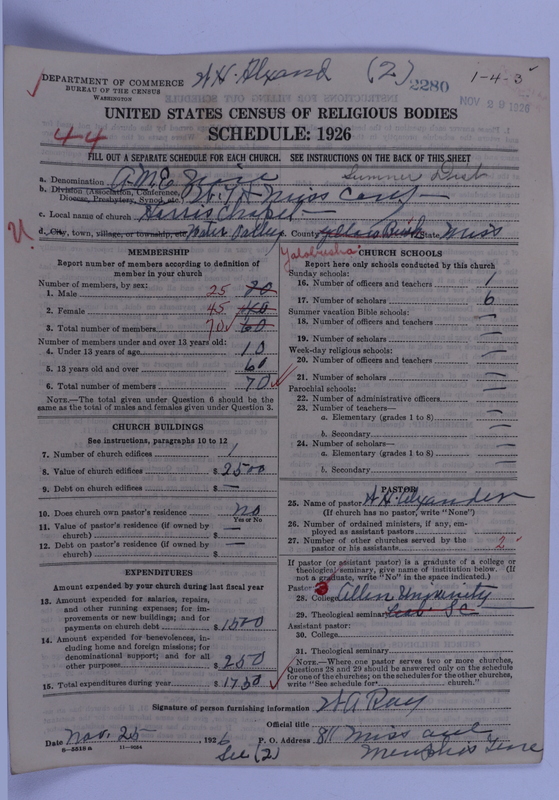 (2)
2280
1-4-3
DEPARTMENT OF COMMERCE
BUREAU OF THE CENSUS
WASHINGTON
NOV 29 1926
UNITED STATES CENSUS OF RELIGIOUS BODIES
SCHEDULE: 1926
44
FILL OUT A SEPARATE SCHEDULE FOR EACH CHURCH. SEE INSTRUCTIONS ON THE BACK OF THIS SHEET
a. Denomination A.M.E.
b. Division (Association, Conference, Diocese, Presbytery, Synod, etc.) Miss Conf
c. Local name of church Harris Chapel
d. City, town, village, or township, etc. Water Valley County State Miss
Yalobusha
MEMBERSHIP
Report number of members according to definition of member in your church
Number of members, by sex:
1. Male 25 20
2. Female 45 40
3. Total number of members 70 60
Number of members under and over 13 years old:
4. Under 13 years of age 10
5. 13 years old and over 60
6. Total number of members 70
NOTE.—The total given under Question 6 should be the same as the total of males and females given under Question 3.
CHURCH BUILDINGS
See instructions, paragraphs 10 to 12
7. Number of church edifices 1
8. Value of church edifices $ 2500
9. Debt on church edifices $ —
10. Does church own pastor's residence No
Yes or No
11. Value of pastor's residence (if owned by church) $ —
12. Debt on pastor's residence (if owned by church) $ —
EXPENDITURES
Amount expended by your church during last fiscal year
13. Amount expended for salaries, repairs, and other running expenses; for improvements or new buildings; and for payments on church debt $ 1500
14. Amount expended for benevolences, including home and foreign missions; for denominational support; and for all other purposes $ 250
15. Total expenditures during year $ 1750
CHURCH SCHOOLS
Report here only schools conducted by this church
Sunday schools:
16. Number of officers and teachers 1
17. Number of scholars 6
Summer vacation Bible schools:
18. Number of officers and teachers —
19. Number of scholars —
Week-day religious schools:
20. Number of officers and teachers —
21. Number of scholars —
Parochial schools:
22. Number of administrative officers —
23. Number of teachers—
a. Elementary (grades 1 to 8) —
b. Secondary —
24. Number of scholars—
a. Elementary (grades 1 to 8) —
b. Secondary —
PASTOR
25. Name of pastor A H Alexander
(If church has no pastor, write "None")
26. Number of ordained ministers, if any, employed as assistant pastors
27. Number of other churches served by the pastor or his assistants 2
If pastor (or assistant pastor) is a graduate of a college or theological seminary, give name of institution below. (If not a graduate, write "No" in the space indicated.)
Pastor:
28. College Allen University
29. Theological seminary S C
Assistant pastor:
30. College
31. Theological seminary
NOTE.—Where one pastor serves two or more churches, Questions 28 and 29 should be answered only on the schedule for one of the churches; on the schedules for the other churches, write "See schedule for church."
Signature of person furnishing information
Official title
Date Nov. 25, 1926
P. O. Address 811 Miss ave
Memphis Tenn
See (2)
6—5518 a 11—9034